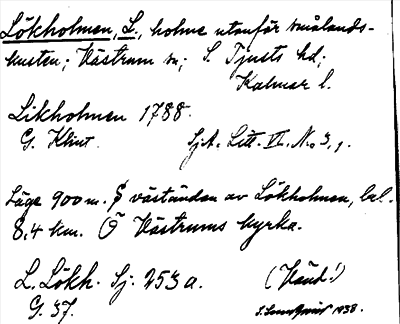 Lökholmen, L., holme utanför smålands-
kusten; Västrum sn; S. Tjusts hd;
Kalmar l.
Likholmen 1788.
G. Klint. SjA. Litt. VI. No 3, 1.
Läge 900 m. S väständan av Lökholmen, bel.
8,4 km. Ö Västrums kyrka.
L. Lökh. Sj. 253 a. (Vänd!)
G. 37. 1938.